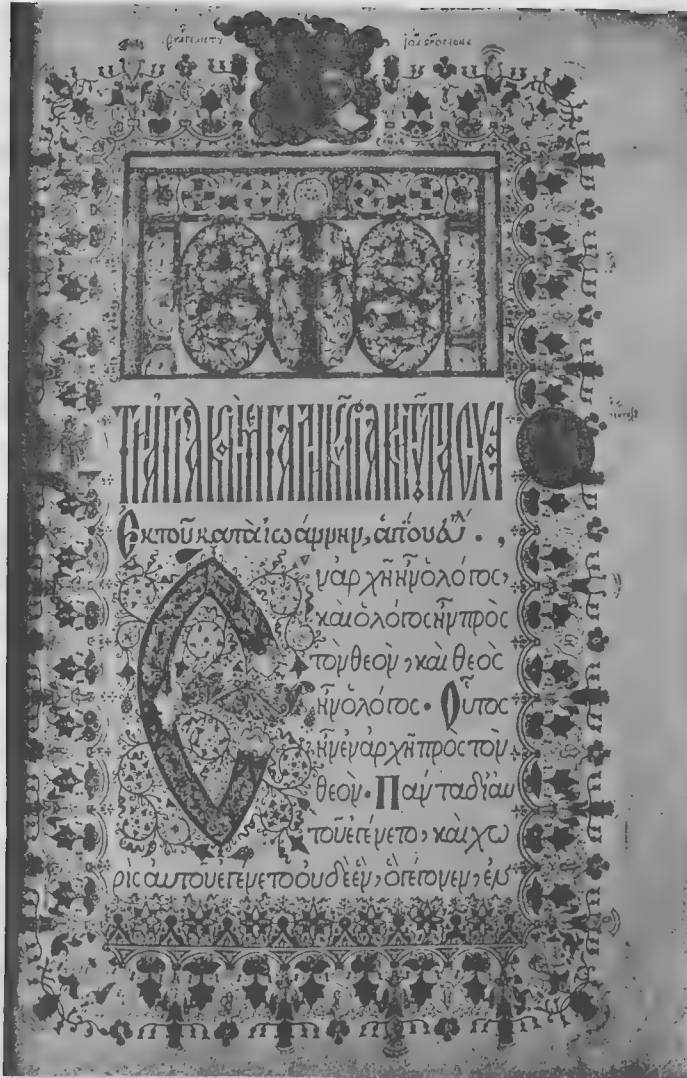 ΤΗ ΑΓΙΑ ΚΑΙ ΜΕΓΑΛΗ ΚΥΡΙΑΚΗ ΤΟΥ ΠΑϹΧΑ
Ἐκ τοῦ κατὰ ἰωάννην, ἁγίου
Ἐν ἀρχῆ ἦν ὁ λόγος,
καὶ ὁ λόγος ἦν πρὸς
τὸν θεὸν, καὶ θεὸς
ἦν ὁ λόγος· Οὗτος
ἦν ἐν ἀρχῆ πρὸς τὸν
θεὸν· Πάντα δι' αὐ
τοῦ ἐγένετο, καὶ χω
ρὶς αὐτοῦ ἐγένετο οὐδὲ ἕν, ὃ γέγονεν, ἐν